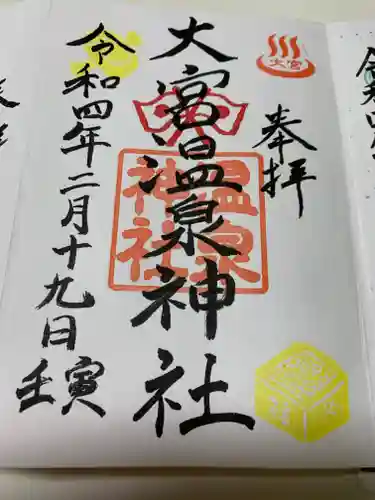 奉拝
大宮
大宮温泉神社
温泉
神社
令和四年二月十九日
壬寅